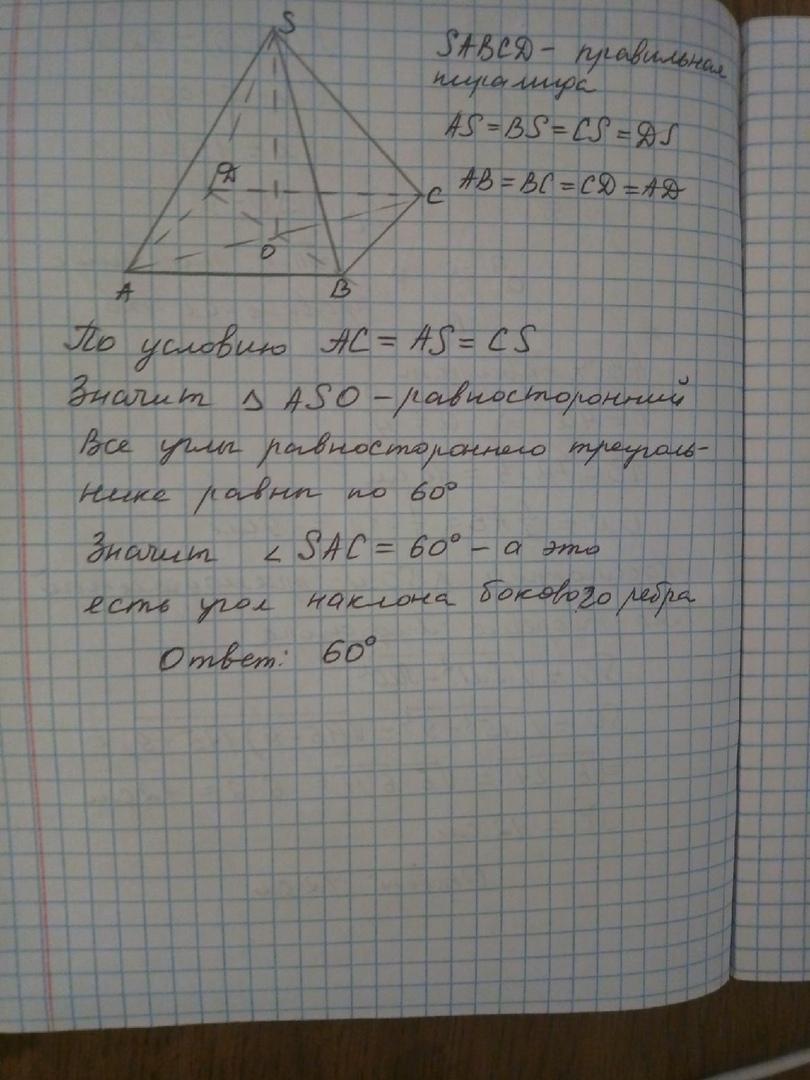 S
SABCD - правильная
пирамида
AS = BS = CS = DS
AB = BC = CD = AD
D
C
O
A
B
По условию AC = AS = CS
Значит △ ASO - равносторонний
Все углы равностороннего треуголь-
нике равны по 60°
Значит ∠ SAC = 60° - а это
есть угол наклона бокового ребра
Ответ: 60°